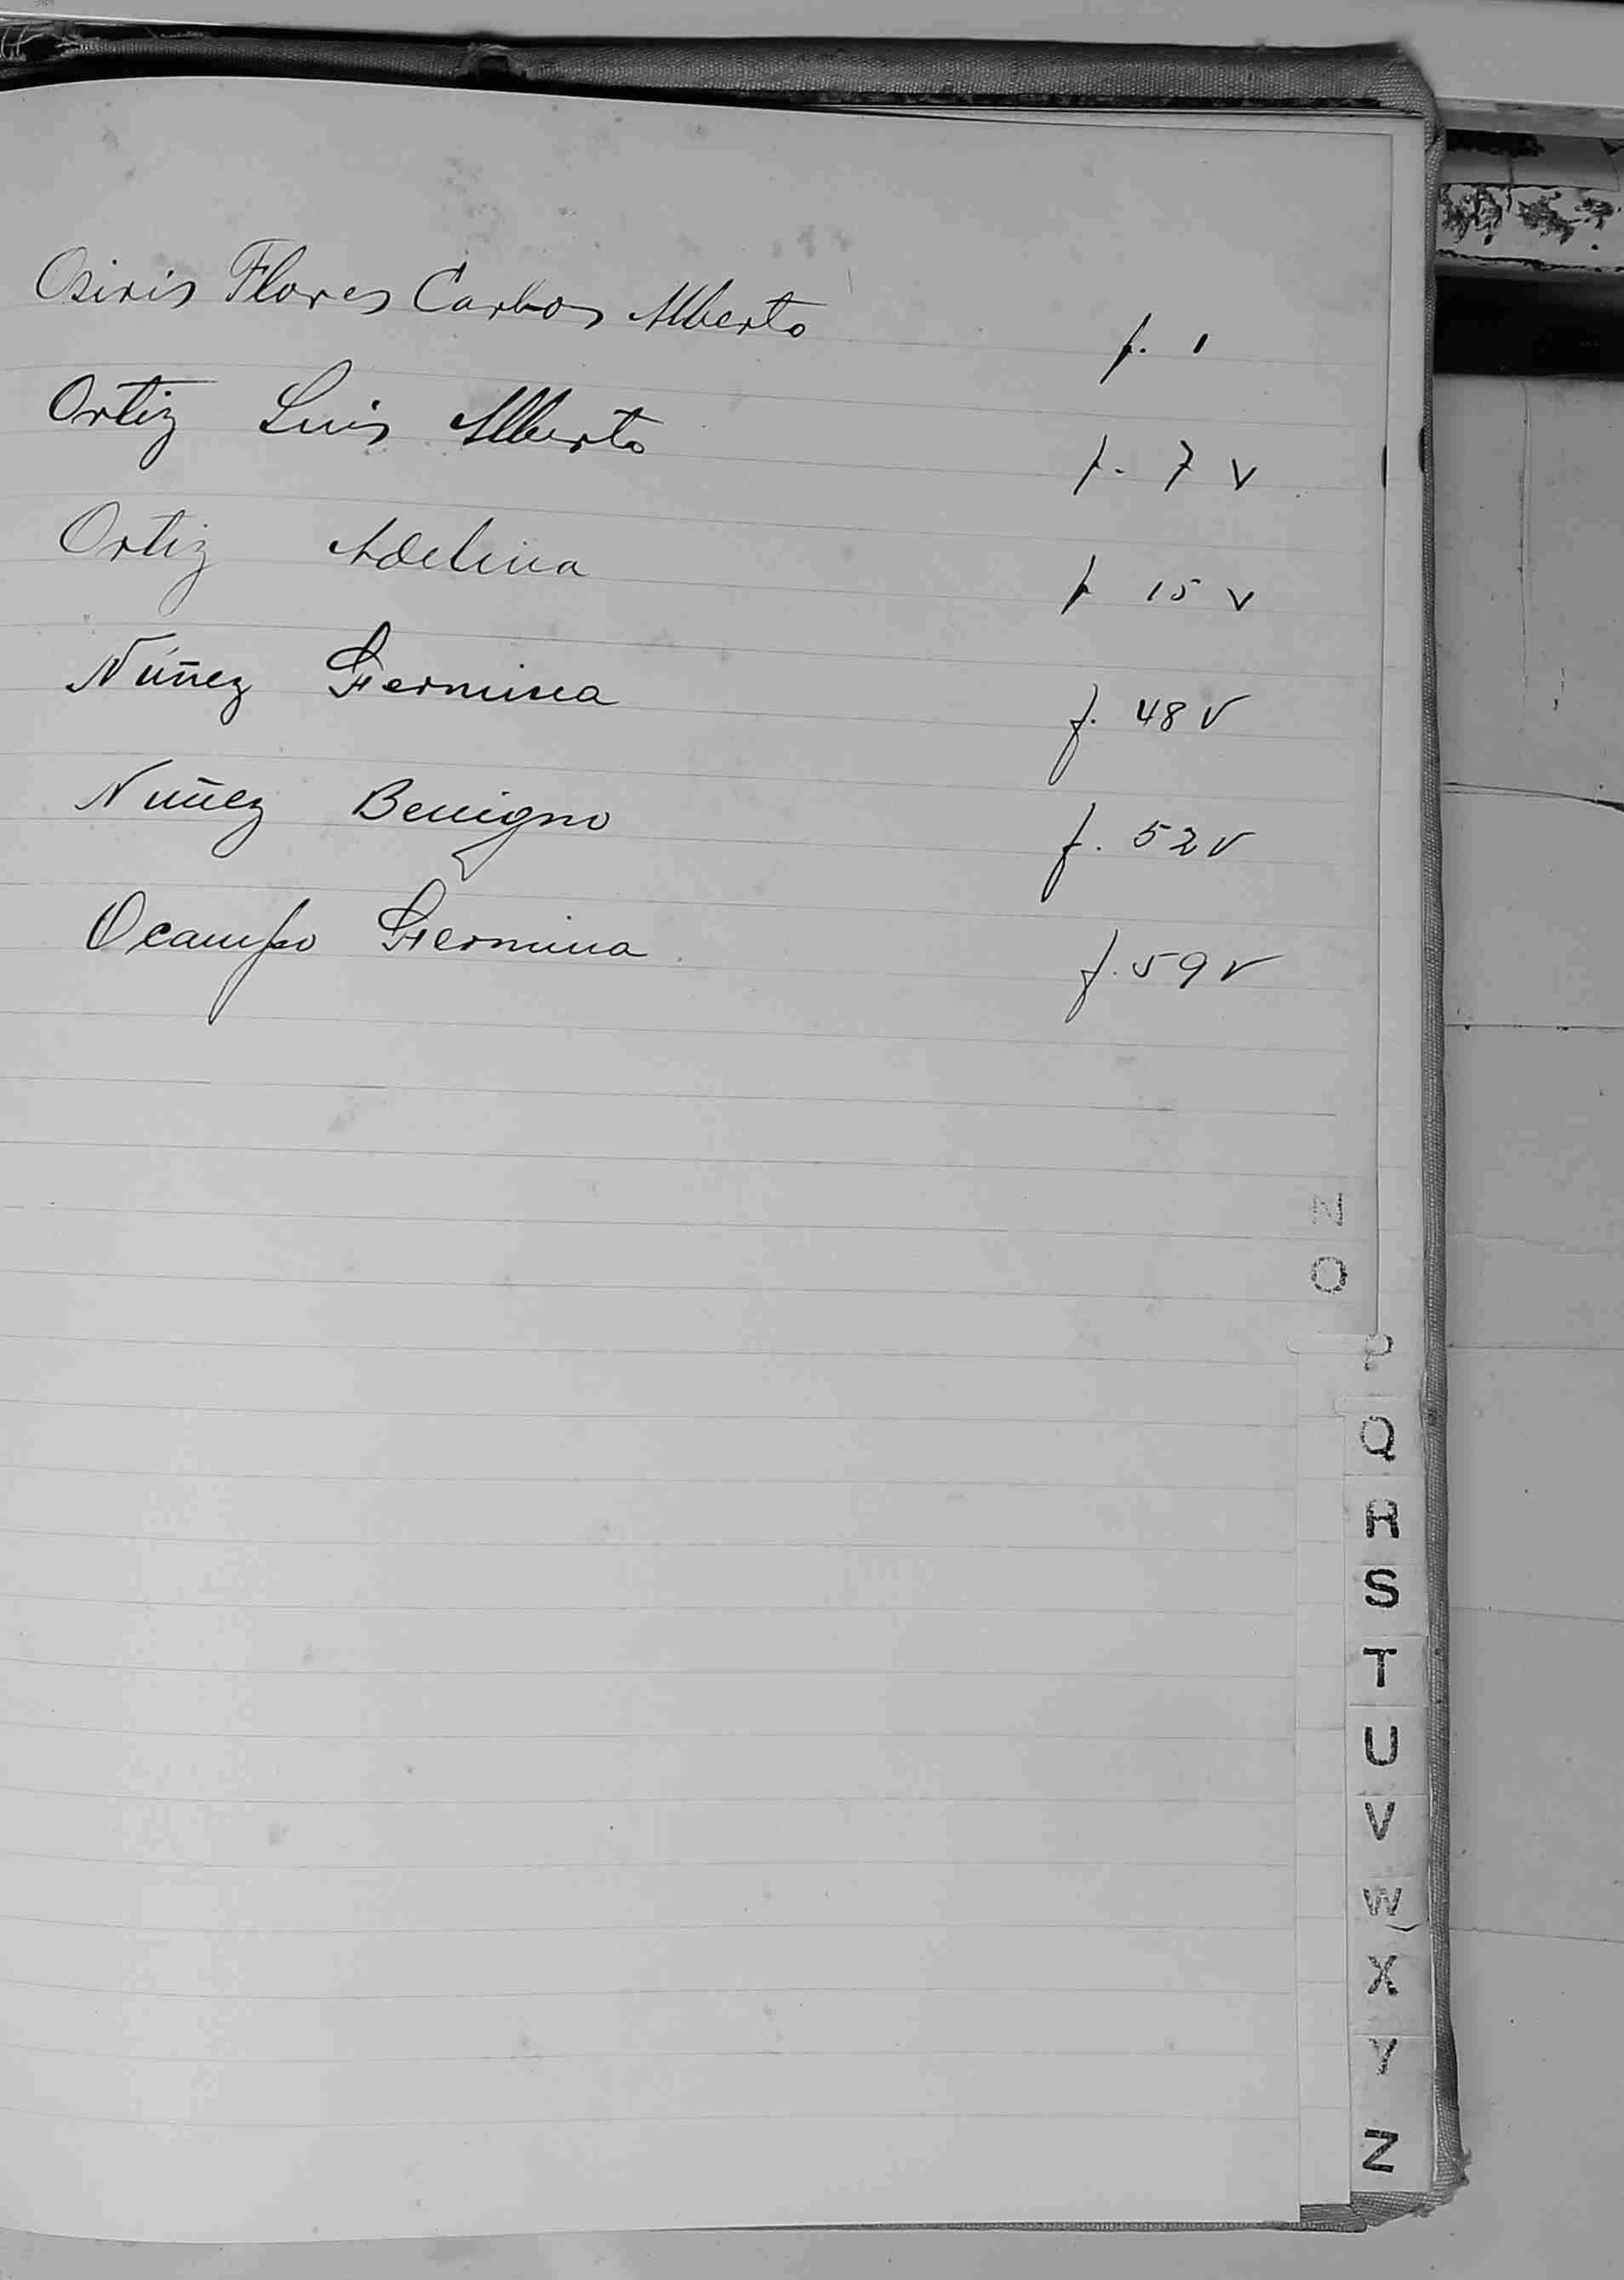 Osiris Flores Carlos Alberto f. 1
Ortiz Luis Alberto f. 7 v
Ortiz Adelina f 15 v
Núñez Fermina f. 48 v
Nuñez Benigno f. 52 v
Ocampo Fermina f. 59 v
N
O
P
Q
R
S
T
U
V
W
X
Y
Z